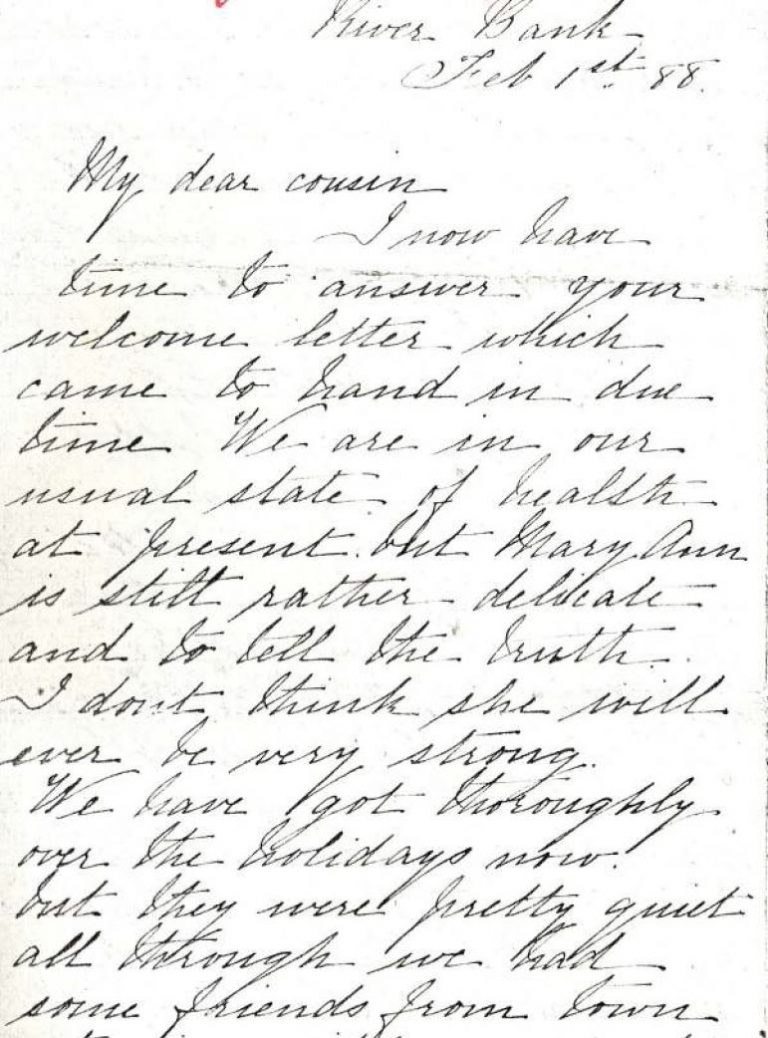 River Bank
Feb 1st 88.
My dear cousin
I now have
time to answer your
welcome letter which
came to hand in due
time We are in our
usual state of health
at present but Mary Ann
is still rather delicate
and to tell the truth
I dont think she will
ever be very strong.
We have got thoroughly
over the holidays now.
but they were pretty quiet
all through we had
some friends from town